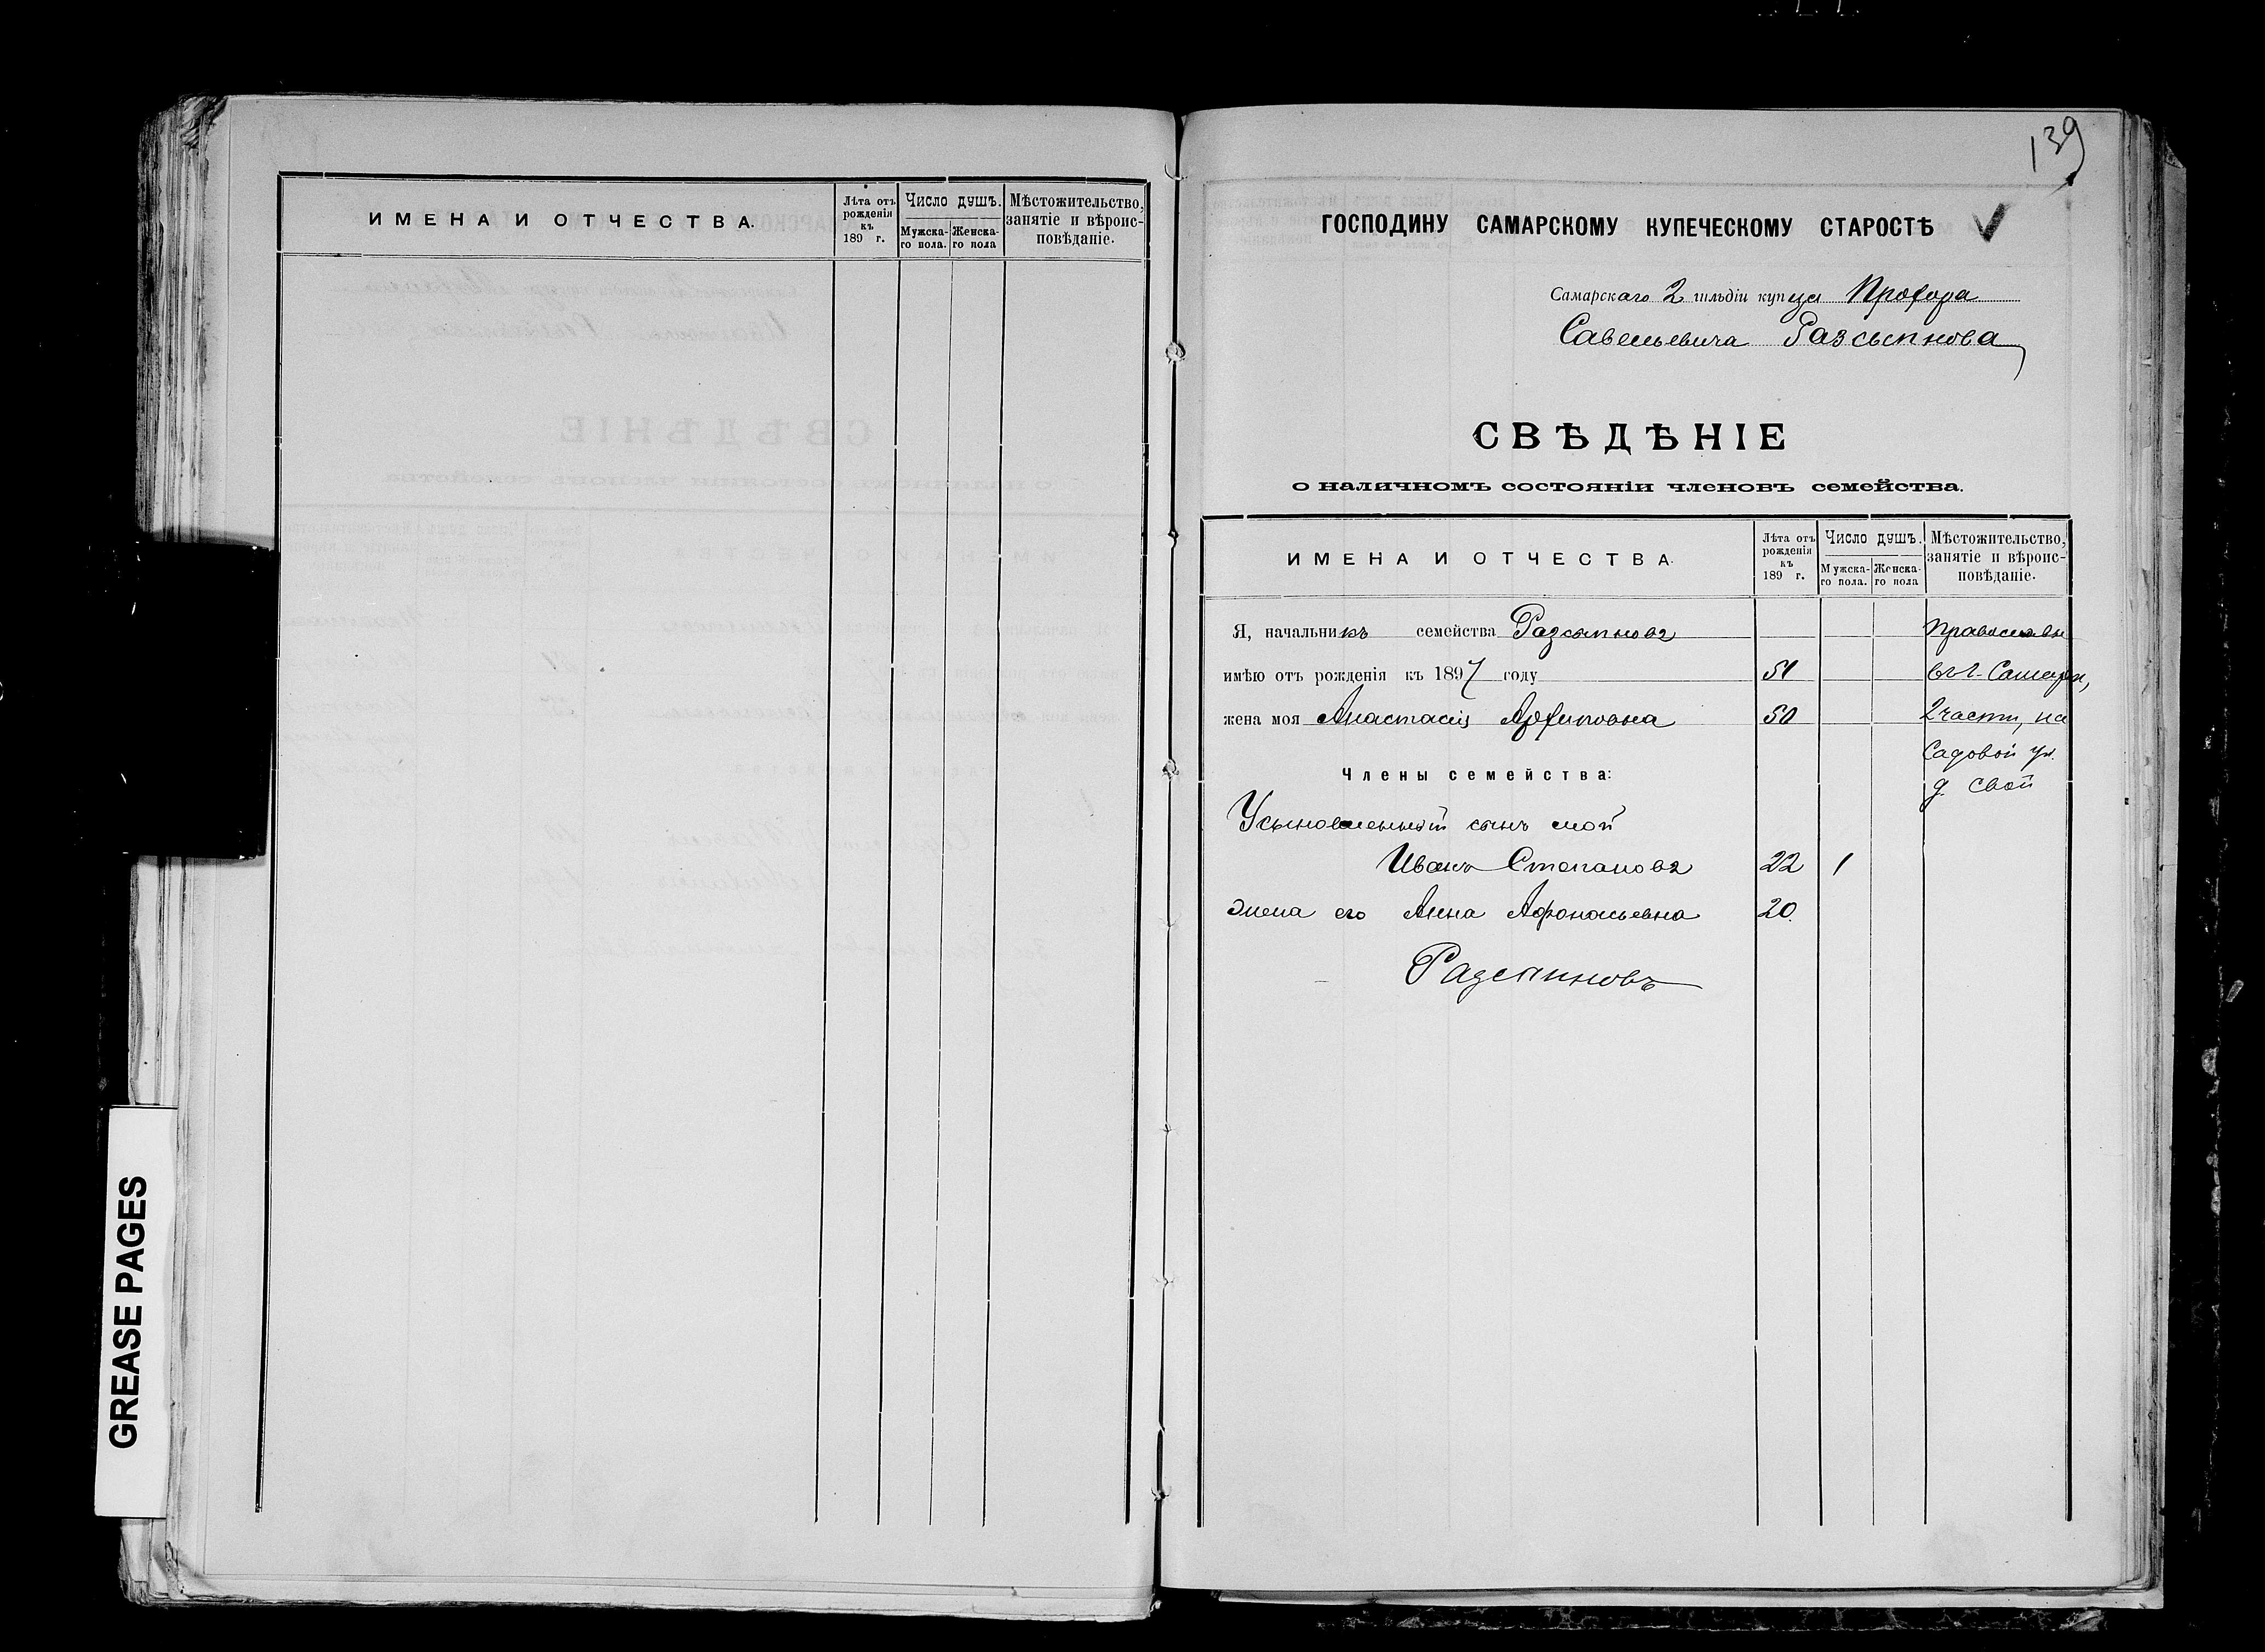 ИМЕНА И ОТЧЕСТВА.
Лѣта отъ рожденія къ 189 г.
Число душъ.
Мужска-го пола.
Женска-го пола
Мѣстожительство, занятіе и вѣроис-повѣданіе.
GREASE PAGES
139
ГОСПОДИНУ САМАРСКОМУ КУПЕЧЕСКОМУ СТАРОСТѢ
Самарскаго 2 гильдіи купца Прохора
Савельевича Разсыпнова
СВѢДѢНІЕ
о наличномъ состояніи членовъ семейства.
ИМЕНА И ОТЧЕСТВА.
Лѣта отъ рожденія къ 189 г.
Число душъ.
Мужска-го пола.
Женска-го пола
Мѣстожительство, занятіе и вѣроис-повѣданіе.
Я, начальникъ семейства Разсыпновъ Православн
имѣю отъ рожденія къ 1897 году 51 въ г. Самарѣ,
жена моя Анастасія Архиповна 50 2 части, на
Садовой ул.
Члены семейства:
д. свой
Усыновленный сынъ мой
Иванъ Степановъ 22 1
Жена его Анна Афонасьевна 20.
Разсыпновъ